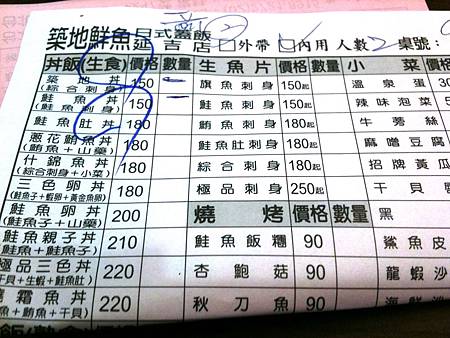 築地鮮魚 日式蓋飯 延吉店 □外帶 □內用 人數 2 桌號:
丼飯(生食) 價格 數量 生魚片 價格 數量 小菜
築地丼 (綜合刺身) 150 一 旗魚刺身 150起 溫泉蛋 30
鮭魚丼 (鮭魚刺身) 150 一 鮭魚刺身 150起 辣味泡菜 5
鮭魚肚丼 180 鮪魚刺身 180起 牛蒡絲
蔥花鮪魚丼 (鮪魚+山藥) 180 鮭魚肚刺身 180起 麻噌豆腐
什錦魚丼 (綜合刺身+小菜) 180 綜合刺身 180起 招牌黃瓜
三色卵丼 (鮭魚子+蝦卵+黃金魚卵) 180 極品刺身 250起 干貝
鮭魚卵丼 (鮭魚子+山藥) 200 燒烤 價格 數量 黑
鮭魚親子丼 (鮭魚+鮭魚子) 210 鮭魚飯糰 90 鯊魚皮
極品三色丼 (干貝+生蝦+鮭魚肚) 220 杏鮑菇 90 龍蝦沙
霜鮪丼 (鮪魚+干貝) 220 秋刀魚 90 海鮮沙